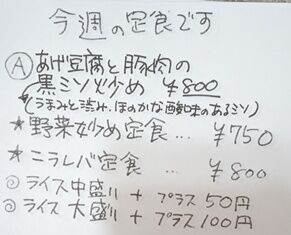 今週の定食です
Ⓐ あげ豆腐と豚肉の
黒ミソ炒め ¥800
(うまみと渋み、ほのかな酸味のあるミソ)
★野菜炒め定食… ¥750
★ニラレバ定食 … ¥800
◎ライス中盛り + プラス 50円
◎ライス大盛り + プラス 100円